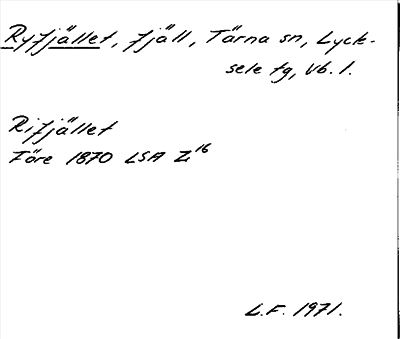 Ryfjället, fjäll, Tärna sn, Lyck-
sele tg, Vb. l.
Rifjället
Före 1870 LSA Z16
L.F. 1971.